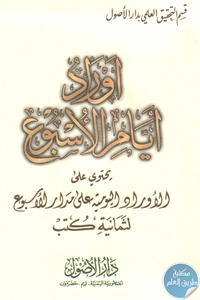 قسم التحقيق العلمي بدار الأصول
أوراد
أيام الأسبوع
يحتوي على
الأوراد اليومية على مدار الأسبوع
لثمانية كتب
دار الأصول
مكتبة
طريق العلم